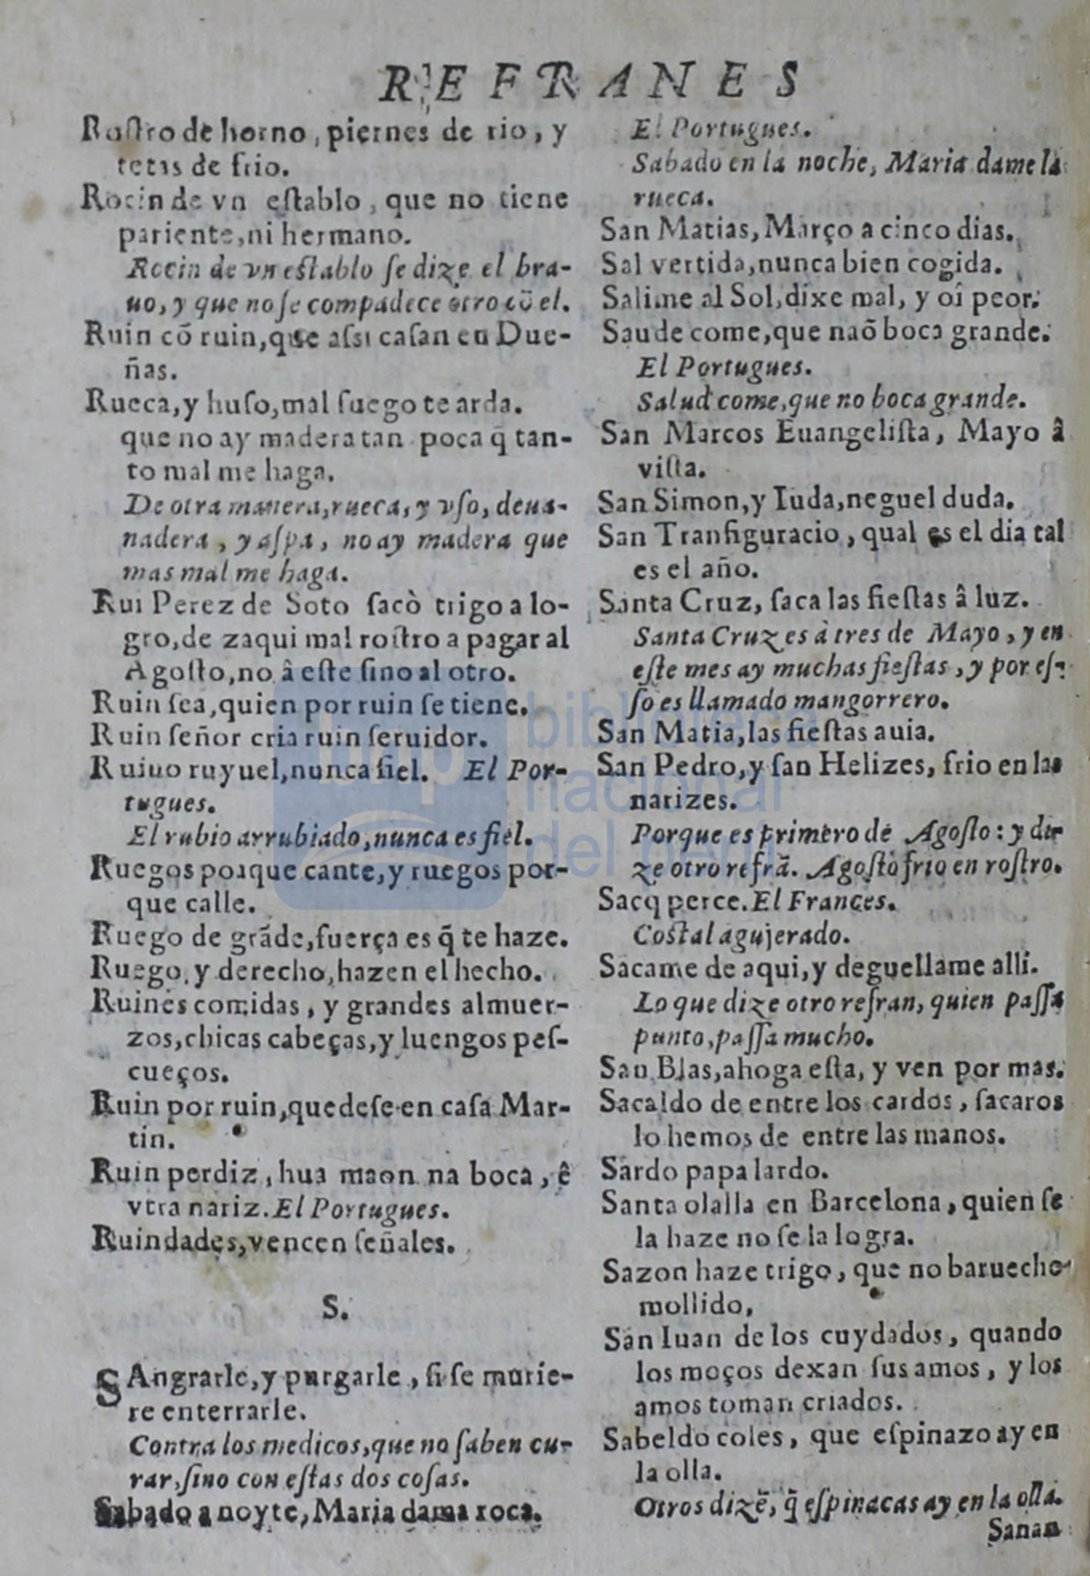 REFRANES
Rostro de horno, piernes de rio, y
tetas de frio.
Rocin de vn eſtablo, que no tiene
pariente, ni hermano.
Rocin de vn eſtablo ſe dize el bra-
uo, y que no ſe compadece otro cõ el.
Ruin cõ ruin, que aſsi caſan en Due-
ñas.
Rueca, y huſo, mal fuego te arda.
que no ay madera tan poca q̃ tan-
to mal me haga.
De otra manera, rueca, y vſo, deua-
nadera, y aſpa, no ay madera que
mas mal me haga.
Rui Perez de Soto ſacò trigo a lo-
gro, de zaqui mal roſtro a pagar al
Agoſto, no â eſte ſino al otro.
Ruin ſea, quien por ruin ſe tiene.
Ruin ſeñor cria ruin ſeruidor.
Ruiuo ruyuel, nunca fiel. El Por-
tugues.
El rubio arrubiado, nunca es fiel.
Ruegos porque cante, y ruegos por-
que calle.
Ruego de grãde, fuerça es q̃ te haze.
Ruego, y derecho, hazen el hecho.
Ruines comidas, y grandes almuer-
zos, chicas cabeças, y luengos peſ-
cueços.
Ruin por ruin, quedeſe en caſa Mar-
tin.
Ruin perdiz, hua maon na boca, ê
vtra nariz. El Portugues.
Ruindades, vencen ſeñales.
S.
SAngrarle, y purgarle, ſi ſe murie-
re enterrarle.
Contra los medicos, que no ſaben cu-
rar, ſino con eſtas dos coſas.
Sabado a noyte, Maria dama roca.
El Portugues.
Sabado en la noche, Maria dame la
rueca.
San Matias, Março a cinco dias.
Sal vertida, nunca bien cogida.
Salime al Sol, dixe mal, y oî peor.
Saude come, que naõ boca grande.
El Portugues.
Salud come, que no boca grande.
San Marcos Euangeliſta, Mayo â
viſta.
San Simon, y Iuda, neguel duda.
San Tranfiguracio, qual es el dia tal
es el año.
Santa Cruz, ſaca las fieſtas â luz.
Santa Cruz es à tres de Mayo, y en
eſte mes ay muchas fieſtas, y por eſ-
ſo es llamado mangorrero.
San Matia, las fieſtas auia.
San Pedro, y ſan Helizes, frio en las
narizes.
Porque es primero de Agoſto: y di-
ze otro refrã. Agoſto frio en roſtro.
Sacq perce. El Frances.
Coſtal agujerado.
Sacame de aqui, y deguellame allî.
Lo que dize otro refran, quien paſſa
punto, paſſa mucho.
San Blas, ahoga eſta, y ven por mas.
Sacaldo de entre los cardos, ſacaros
lo hemos de entre las manos.
Sardo papa lardo.
Santa olalla en Barcelona, quien ſe
la haze no ſe la logra.
Sazon haze trigo, que no baruecho
mollido,
San Iuan de los cuydados, quando
los moços dexan ſus amos, y los
amos toman criados.
Sabeldo coles, que eſpinazo ay en
la olla.
Otros dizẽ, q̃ eſpinacas ay en la olla.
Sanan
biblioteca
nacional
del perú